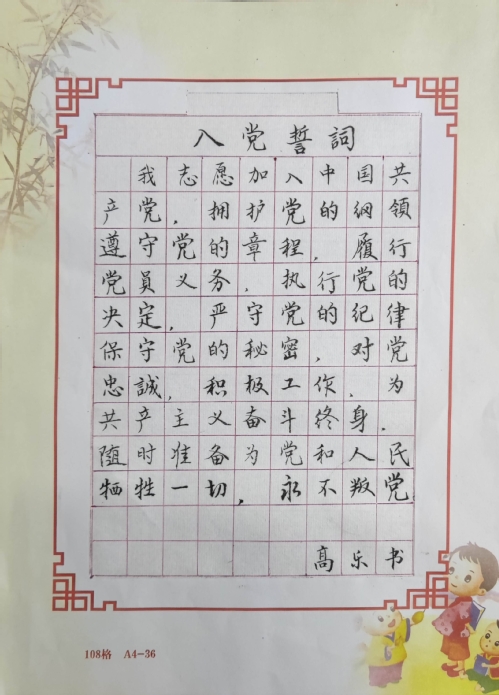 入党誓詞
我志愿加入中国共
产党，拥护党的纲領
遵守党的章程，履行
党員义务，执行党的
决定，严守党的纪律
保守党的秘密，对党
忠誠，积极工作，为
共产主义奋斗终身.
随时准备为党和人民
牺牲一切，永不叛党
高乐书
108格 A4-36